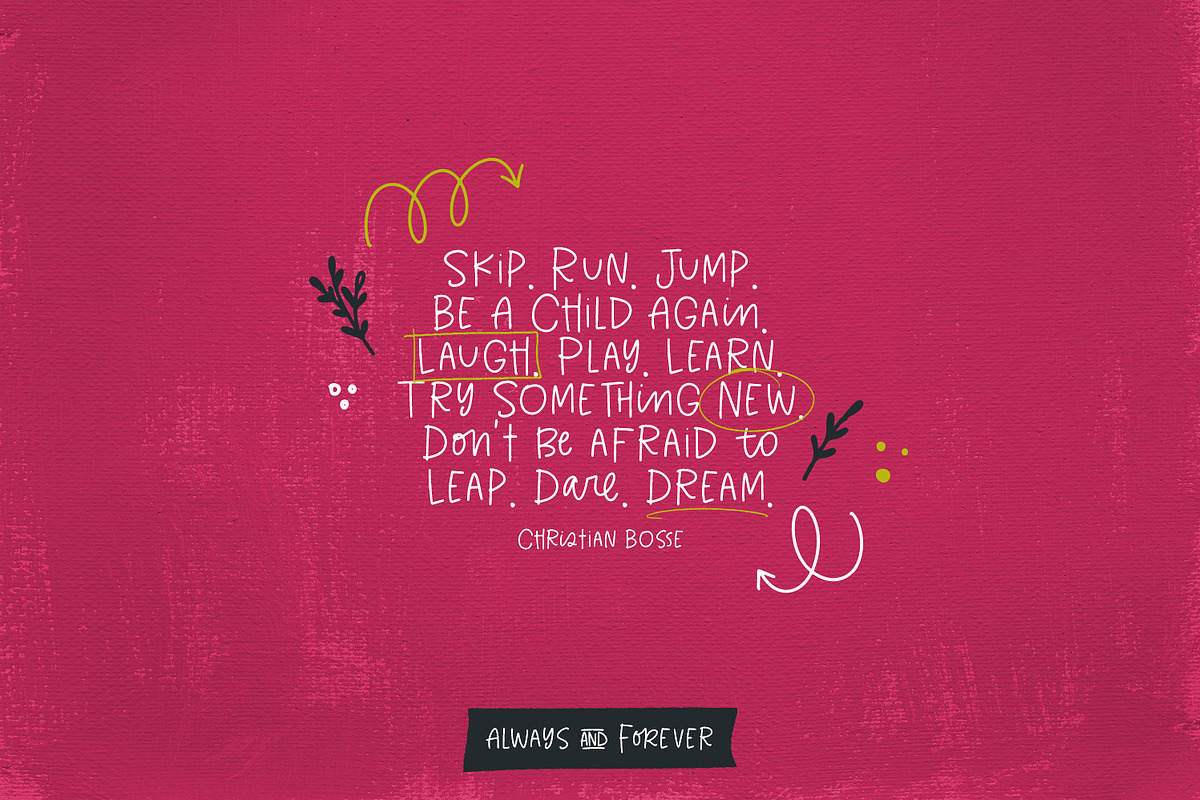 SKiP. RUN. JUMP.
BE A CHiLD AGAin.
LAUGH. PLAY. LEARN.
TRY SOMETHinG NEW.
Don't Be AFRAiD to
LEAP. Dare. DREAM.
CHRistiAN BOSSE
ALWAYS AND FOREVER